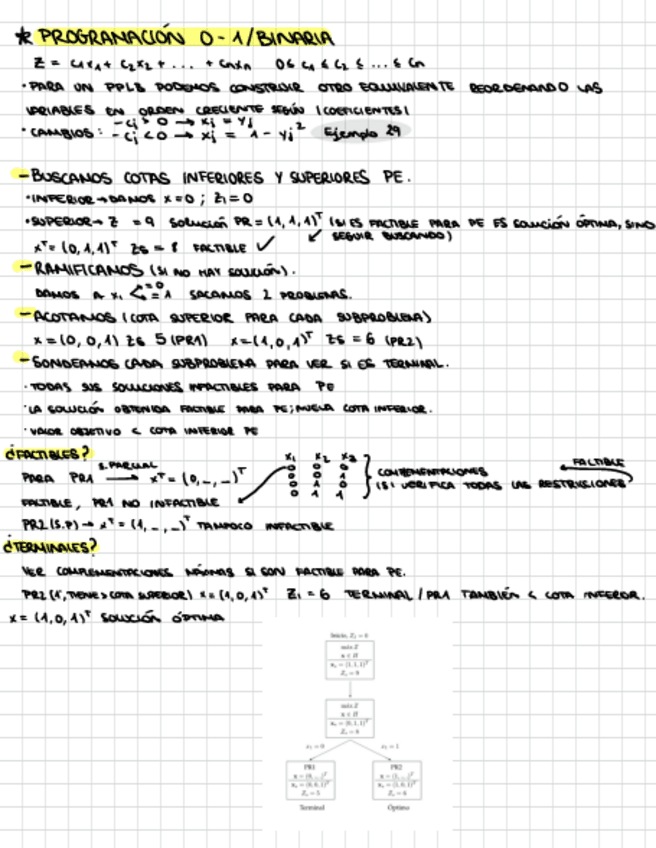 * PROGRAMACIÓN 0-1/BINARIA
Z = c1x1 + c2x2 + ... + cnxn 0 ≤ c1 ≤ c2 ≤ ... ≤ cn
· PARA UN PPLB PODEMOS CONSTRUIR OTRO EQUIVALENTE REORDENANDO LAS
VARIABLES EN ORDEN CRECIENTE SEGÚN |COEFICIENTES|
· CAMBIOS: - cj > 0 → xj = yj
- cj < 0 → xj = 1 - yj² Ejemplo 29
- BUSCAMOS COTAS INFERIORES Y SUPERIORES PE.
· INFERIOR → DAMOS x=0 ; Z1=0
· SUPERIOR → Z = 9 SOLUCIÓN PR = (1,1,1)ᵀ (SI ES FACTIBLE PARA PE ES SOLUCIÓN ÓPTIMA, SINO
SEGUIR BUSCANDO)
xᵀ= (0,1,1)ᵀ Zs = 8 FACTIBLE ✓
- RAMIFICAMOS (SI NO HAY SOLUCIÓN).
DAMOS A x1 =0 =1 SACAMOS 2 PROBLEMAS.
- ACOTAMOS (COTA SUPERIOR PARA CADA SUBPROBLEMA)
x = (0,0,1) Zs 5 (PR1) x=(1,0,1)ᵀ Zs = 6 (PR2)
- SONDEAMOS CADA SUBPROBLEMA PARA VER SI ES TERMINAL.
· TODAS SUS SOLUCIONES INFACTIBLES PARA PE
· LA SOLUCIÓN OBTENIDA FACTIBLE PARA PE; NUEVA COTA INFERIOR.
· VALOR OBJETIVO < COTA INFERIOR PE
¿FACTIBLES?
PARA PR1 S.PARCIAL → xᵀ= (0,_,_)ᵀ
x1 x2 x3
0 0 0
0 0 1
0 1 0
0 1 1
COMPLEMENTACIONES
(SI VERIFICA TODAS LAS RESTRICCIONES)
FACTIBLE
FACTIBLE, PR1 NO INFACTIBLE
PR2 (S.P) → xᵀ= (1,_,_)ᵀ TAMPOCO INFACTIBLE
¿TERMINALES?
VER COMPLEMENTACIONES MÁXIMAS SI SON FACTIBLE PARA PE.
PR2 (1º, TIENE > COTA SUPERIOR) x = (1,0,1)ᵀ Z1 = 6 TERMINAL / PR1 TAMBIÉN < COTA INFERIOR.
x = (1,0,1)ᵀ SOLUCIÓN ÓPTIMA
Inicio, Z1 = 0
x ∈ H
xs = (1,1,1)ᵀ
Zs = 9
x ∈ H
xs = (0,1,1)ᵀ
Zs = 8
x1 = 0 x1 = 1
PR1 PR2
x = (0,_,_)ᵀ x = (1,_,_)ᵀ
xs = (0,0,1)ᵀ xs = (1,0,1)ᵀ
Zs = 5 Zs = 6
Terminal Óptimo